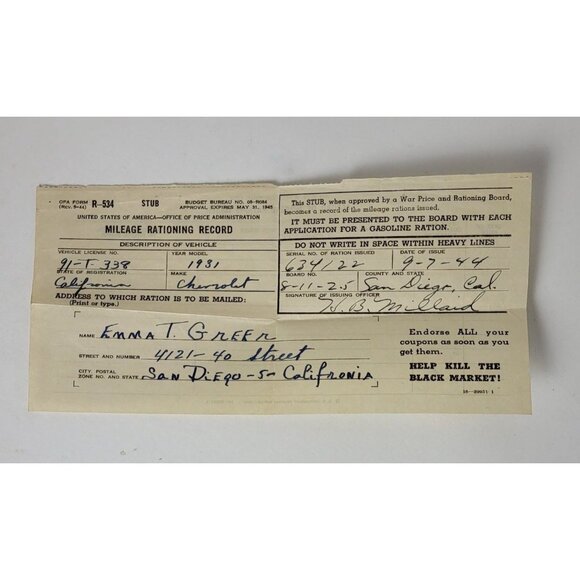 OPA FORM R-534 STUB BUDGET BUREAU NO. 08-R084
(Rev. 9-44) APPROVAL EXPIRES MAY 31, 1945
UNITED STATES OF AMERICA—OFFICE OF PRICE ADMINISTRATION
MILEAGE RATIONING RECORD
DESCRIPTION OF VEHICLE
VEHICLE LICENSE NO. YEAR MODEL
91-F-338 1931
STATE OF REGISTRATION MAKE
California Chevrolet
ADDRESS TO WHICH RATION IS TO BE MAILED:
(Print or type.)
This STUB, when approved by a War Price and Rationing Board,
becomes a record of the mileage rations issued.
IT MUST BE PRESENTED TO THE BOARD WITH EACH
APPLICATION FOR A GASOLINE RATION.
DO NOT WRITE IN SPACE WITHIN HEAVY LINES
SERIAL NO. OF RATION ISSUED DATE OF ISSUE
634122 9-7-44
BOARD NO. COUNTY AND STATE
8-11-25 San Diego, Cal.
SIGNATURE OF ISSUING OFFICER
H. B. Millaid
NAME EMMA T. GREER
STREET AND NUMBER 4121-40 Street
CITY, POSTAL
ZONE NO. AND STATE SAN DIEGO-5- CALIFRONIA
Endorse ALL your
coupons as soon as you
get them.
HELP KILL THE
BLACK MARKET!